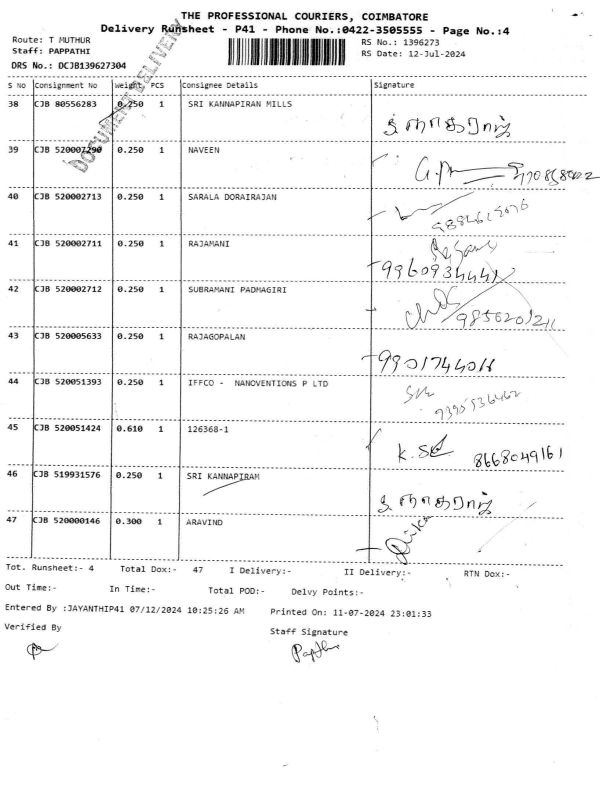 THE PROFESSIONAL COURIERS, COIMBATORE
Delivery Runsheet - P41 - Phone No.:0422-3505555 - Page No.:4
Route: T MUTHUR
RS No.: 1396273
Staff: PAPPATHI
RS Date: 12-Jul-2024
DRS No.: DCJB139627304
DOCUMENT DELIVERY
S No Consignment No Weight PCS Consignee Details Signature
38 CJB 80556283 0.250 1 SRI KANNAPIRAN MILLS
39 CJB 520007290 0.250 1 NAVEEN
40 CJB 520002713 0.250 1 SARALA DORAIRAJAN
41 CJB 520002711 0.250 1 RAJAMANI
42 CJB 520002712 0.250 1 SUBRAMANI PADMAGIRI
43 CJB 520005633 0.250 1 RAJAGOPALAN
9901744011
44 CJB 520051393 0.250 1 IFFCO - NANOVENTIONS P LTD
45 CJB 520051424 0.610 1 126368-1
8668049161
46 CJB 519931576 0.250 1 SRI KANNAPIRAM
47 CJB 520000146 0.300 1 ARAVIND
Tot. Runsheet:- 4 Total Dox:- 47 I Delivery:- II Delivery:- RTN Dox:-
Out Time:- In Time:- Total POD:- Delvy Points:-
Entered By :JAYANTHIP41 07/12/2024 10:25:26 AM Printed On: 11-07-2024 23:01:33
Verified By
Staff Signature